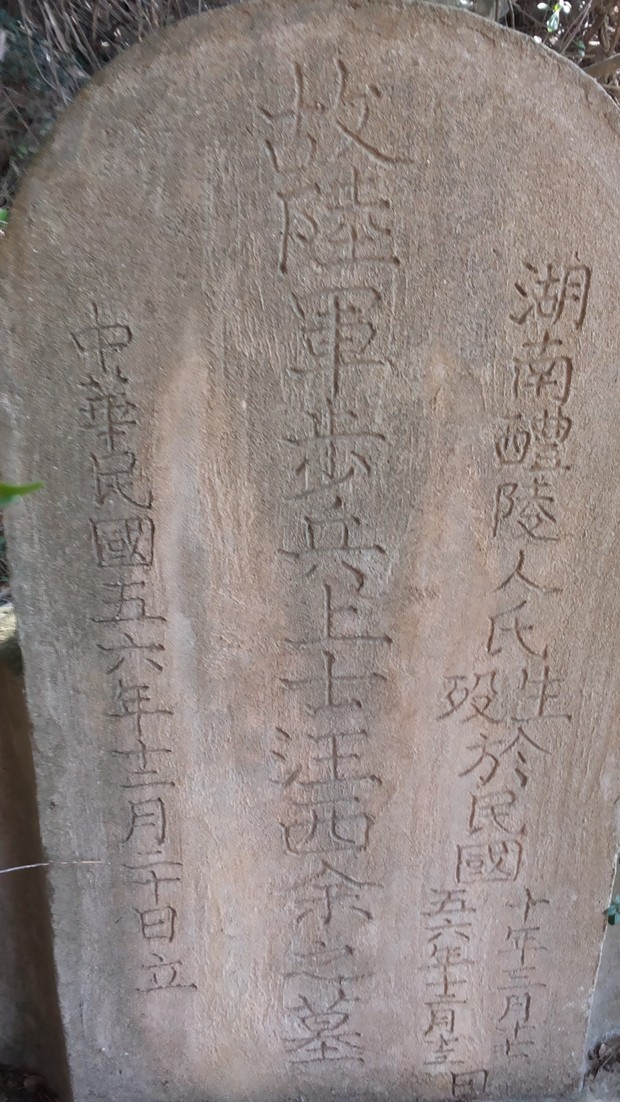 湖南醴陵人氏生於民國十年三月
歿五六年十二月日
故陸軍步兵上士汪西余之墓
中華民國五六年十二月二十日立